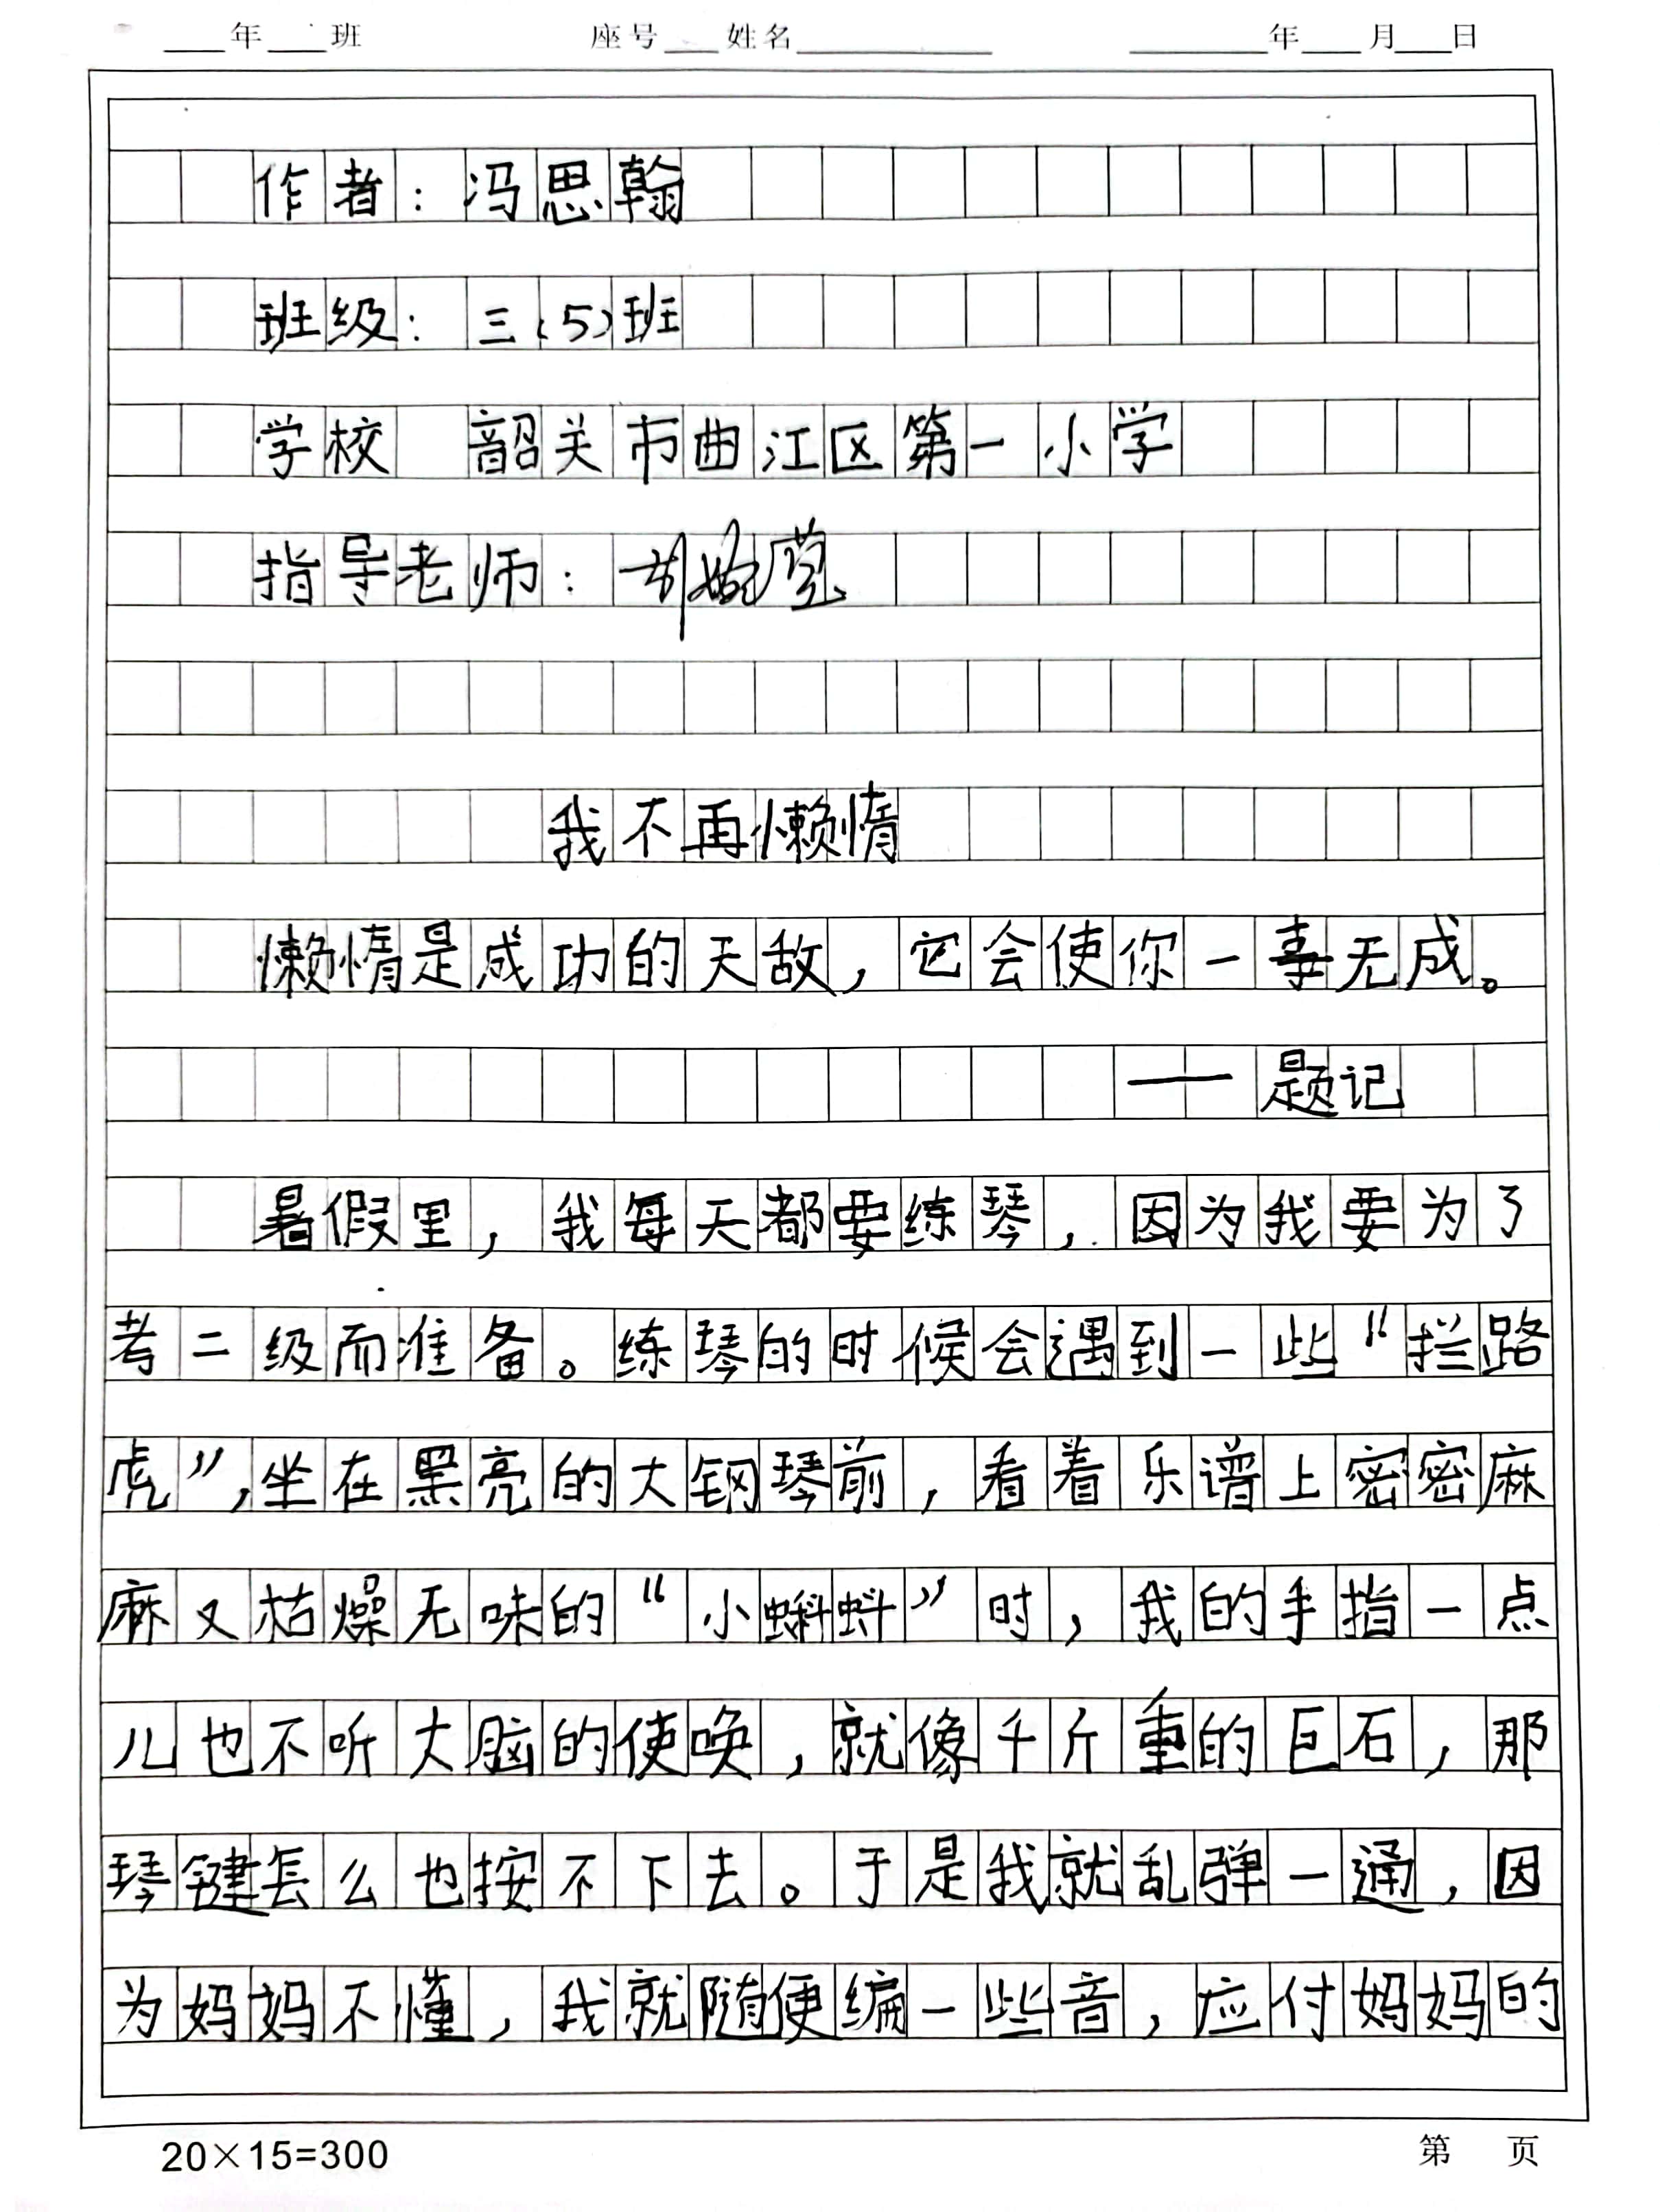 ____年____班 座号____姓名____________ ________年____月____日
作者：冯思翰
班级：三（5）班
学校 韶关市曲江区第一小学
指导老师：胡婉莹
我不再懒惰
懒惰是成功的天敌，它会使你一事无成。
——题记
暑假里，我每天都要练琴，因为我要为了
考二级而准备。练琴的时候会遇到一些“拦路
虎”，坐在黑亮的大钢琴前，看着乐谱上密密麻
麻又枯燥无味的“小蝌蚪”时，我的手指一点
儿也不听大脑的使唤，就像千斤重的巨石，那
琴键怎么也按不下去。于是我就乱弹一通，因
为妈妈不懂，我就随便编一些音，应付妈妈的
20×15=300 第 页